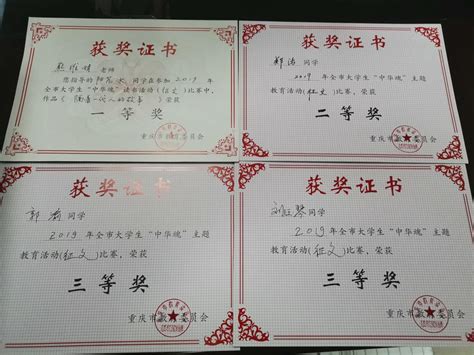 获奖证书
老师
您指导的 同学在参加2019年
全市大学生“中华魂”读书活动(征文)比赛中,
作品《 一代人的故事》荣获
一等奖
重庆市教育委员会
获奖证书
郭涛同学
2019年全市大学生“中华魂”主题
教育活动(征文)比赛,荣获
二等奖
重庆市教育委员会
获奖证书
同学
2019年全市大学生“中华魂”主题
教育活动(征文)比赛,荣获
三等奖
重庆市教育委员会
获奖证书
同学
2019年全市大学生“中华魂”主题
教育活动(征文)比赛,荣获
三等奖
重庆市教育委员会